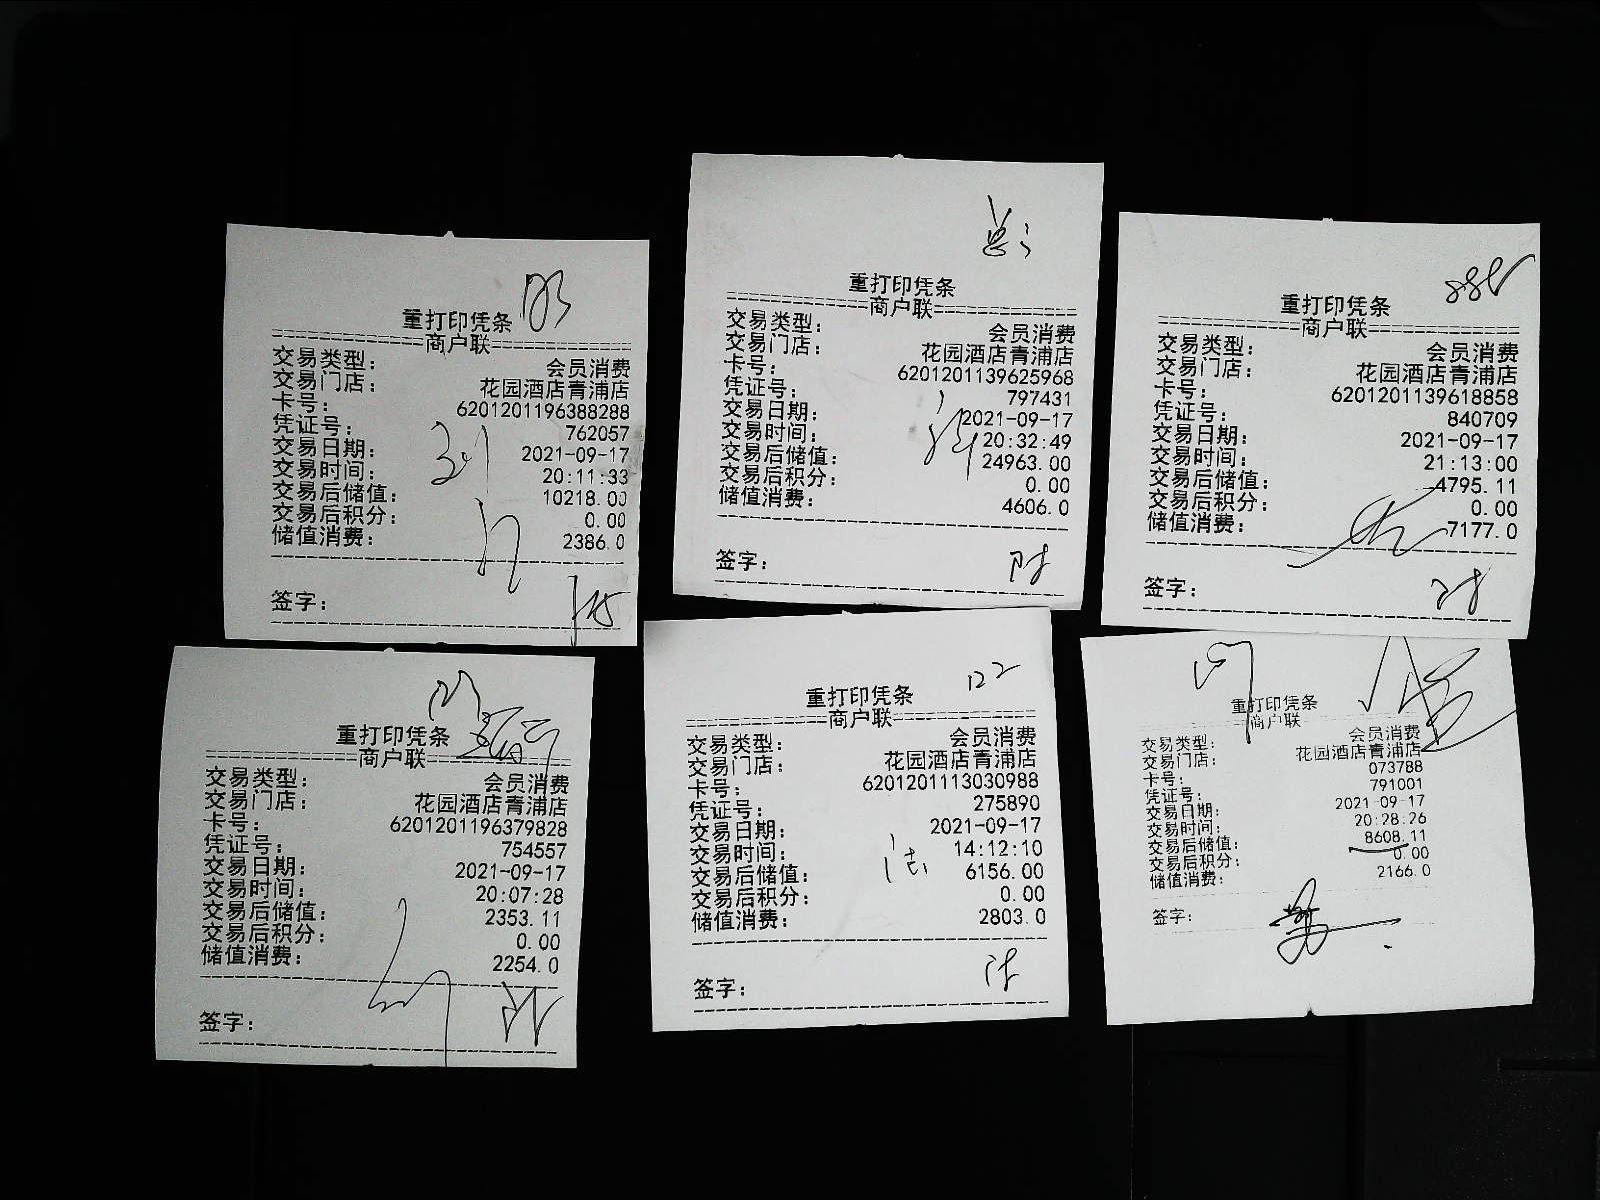 重打印凭条
商户联
交易类型: 会员消费
交易门店: 花园酒店青浦店
卡号: 6201201196388288
凭证号: 762057
交易日期: 2021-09-17
交易时间: 20:11:33
交易后储值: 10218.00
交易后积分: 0.00
储值消费: 2386.0
签字:
重打印凭条
商户联
交易类型: 会员消费
交易门店: 花园酒店青浦店
卡号: 6201201139625968
凭证号: 797431
交易日期: 2021-09-17
交易时间: 20:32:49
交易后储值: 24963.00
交易后积分: 0.00
储值消费: 4606.0
签字:
888
重打印凭条
商户联
交易类型: 会员消费
交易门店: 花园酒店青浦店
卡号: 6201201139618858
凭证号: 840709
交易日期: 2021-09-17
交易时间: 21:13:00
交易后储值: 4795.11
交易后积分: 0.00
储值消费: 7177.0
签字:
重打印凭条
商户联
交易类型: 会员消费
交易门店: 花园酒店青浦店
卡号: 6201201196379828
凭证号: 754557
交易日期: 2021-09-17
交易时间: 20:07:28
交易后储值: 2353.11
交易后积分: 0.00
储值消费: 2254.0
签字:
122
重打印凭条
商户联
交易类型: 会员消费
交易门店: 花园酒店青浦店
卡号: 6201201113030988
凭证号: 275890
交易日期: 2021-09-17
交易时间: 14:12:10
交易后储值: 6156.00
交易后积分: 0.00
储值消费: 2803.0
签字:
重打印凭条
商户联
交易类型: 会员消费
交易门店: 花园酒店青浦店
卡号: 073788
凭证号: 791001
交易日期: 2021-09-17
交易时间: 20:28:26
交易后储值: 8608.11
交易后积分: 0.00
储值消费: 2166.0
签字: